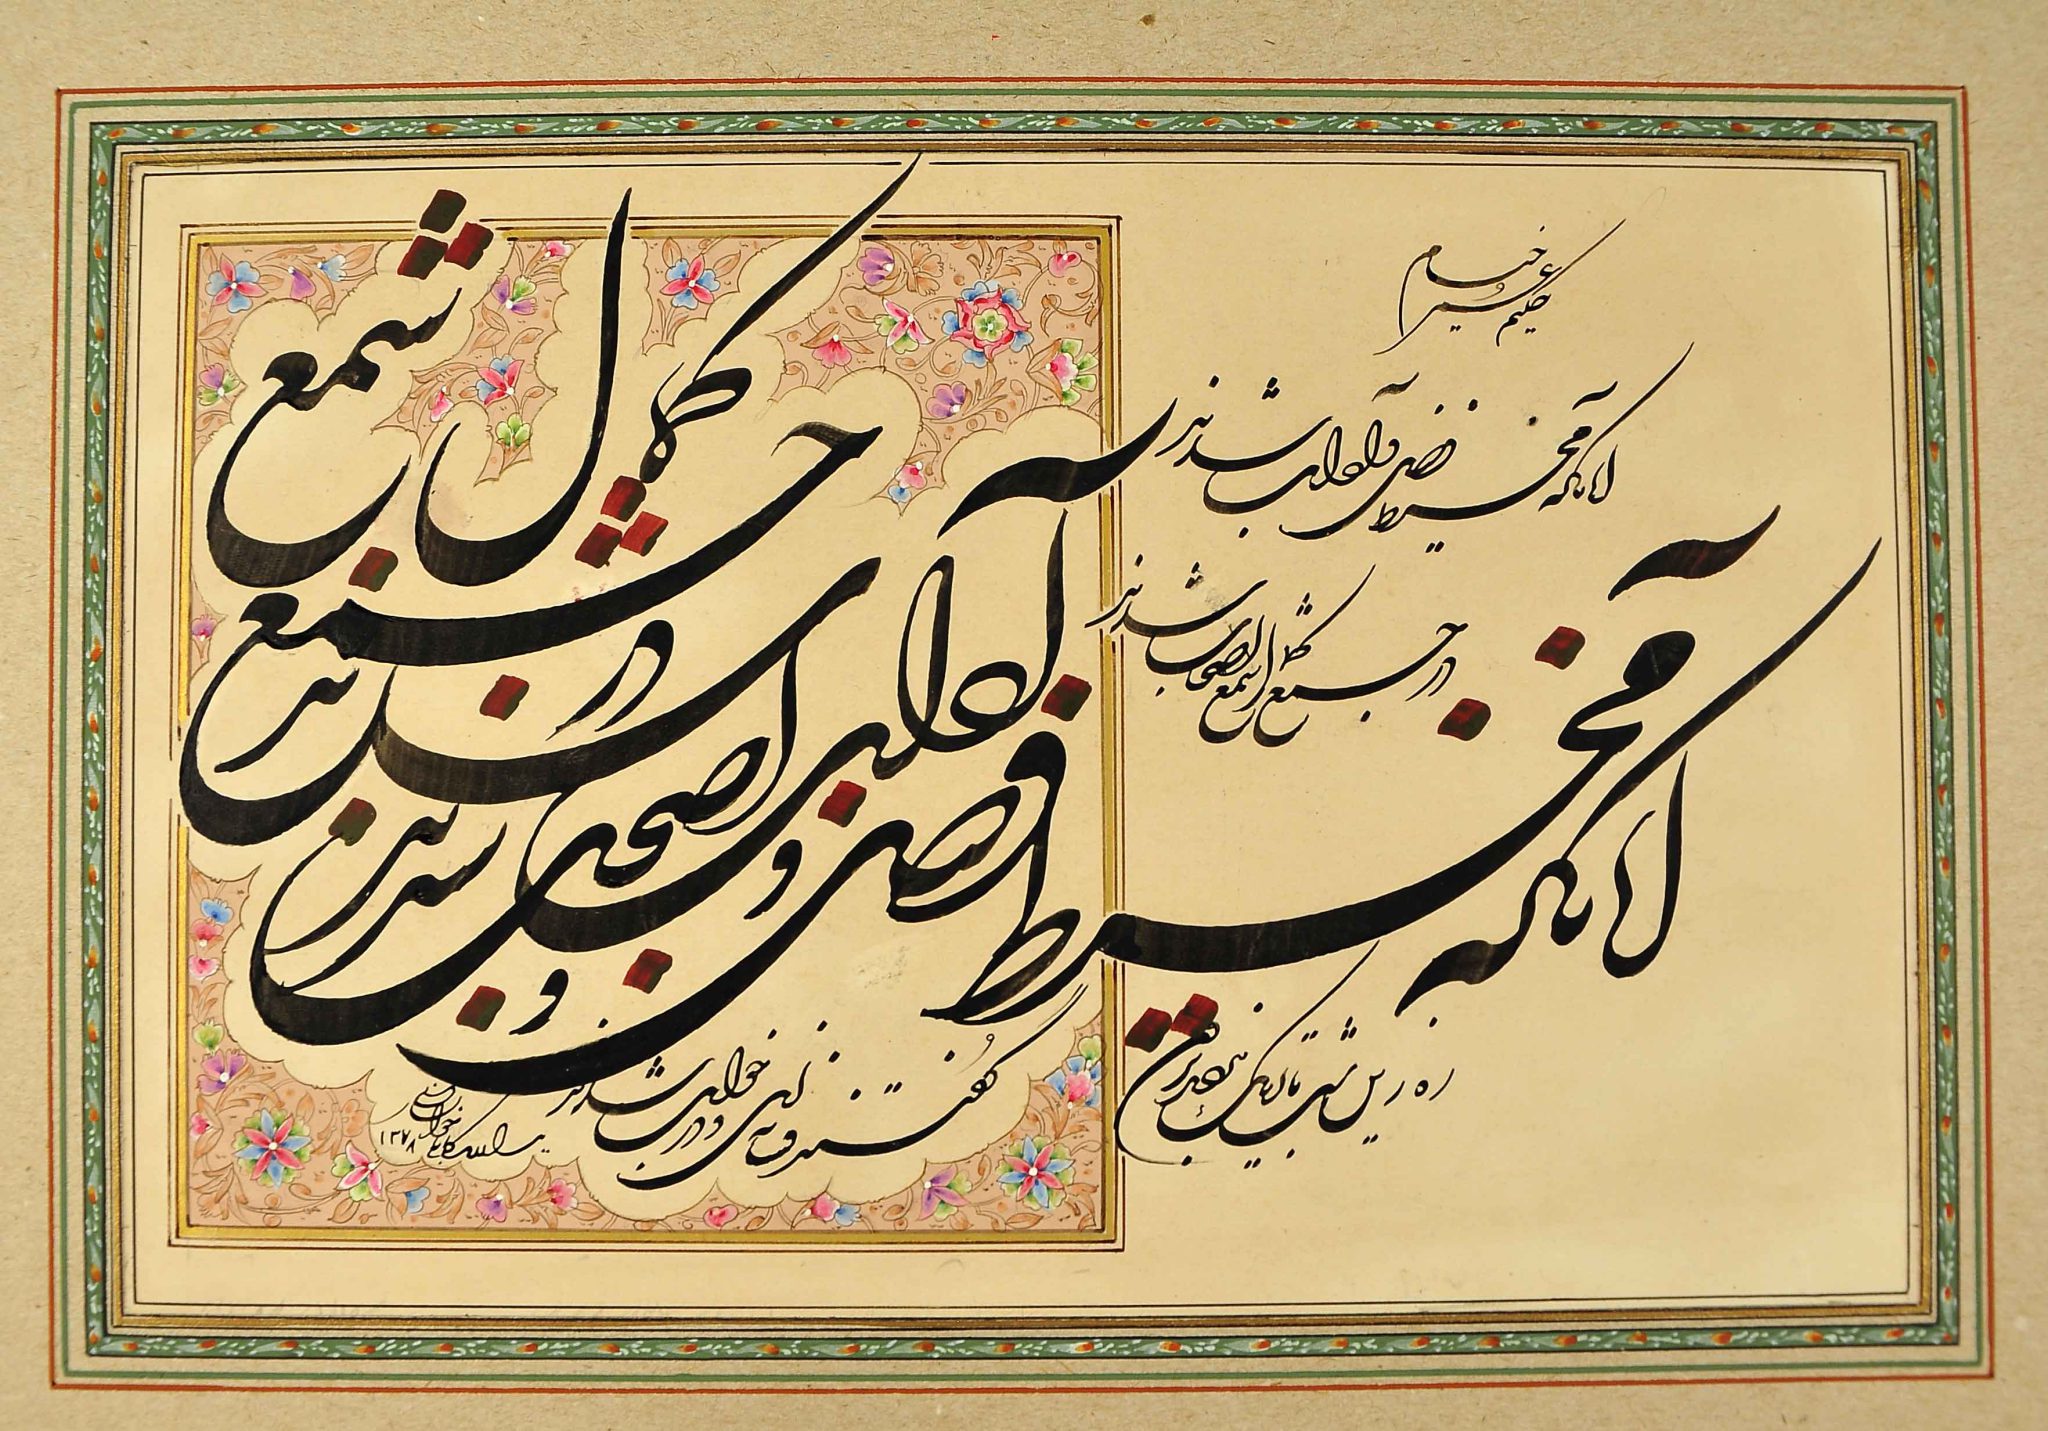 حکیم عمر خیام
آنانکه محیط فضل و آداب شدند
در جمع کمال شمع اصحاب شدند
آنانکه محیط فضل و آداب شدند
در جمع کمال شمع اصحاب شدند
ره زین شب تاریک نبردند برون
گفتند فسانه‌ای و در خواب شدند
یدالله کابلی خوانساری ۱۳۷۸